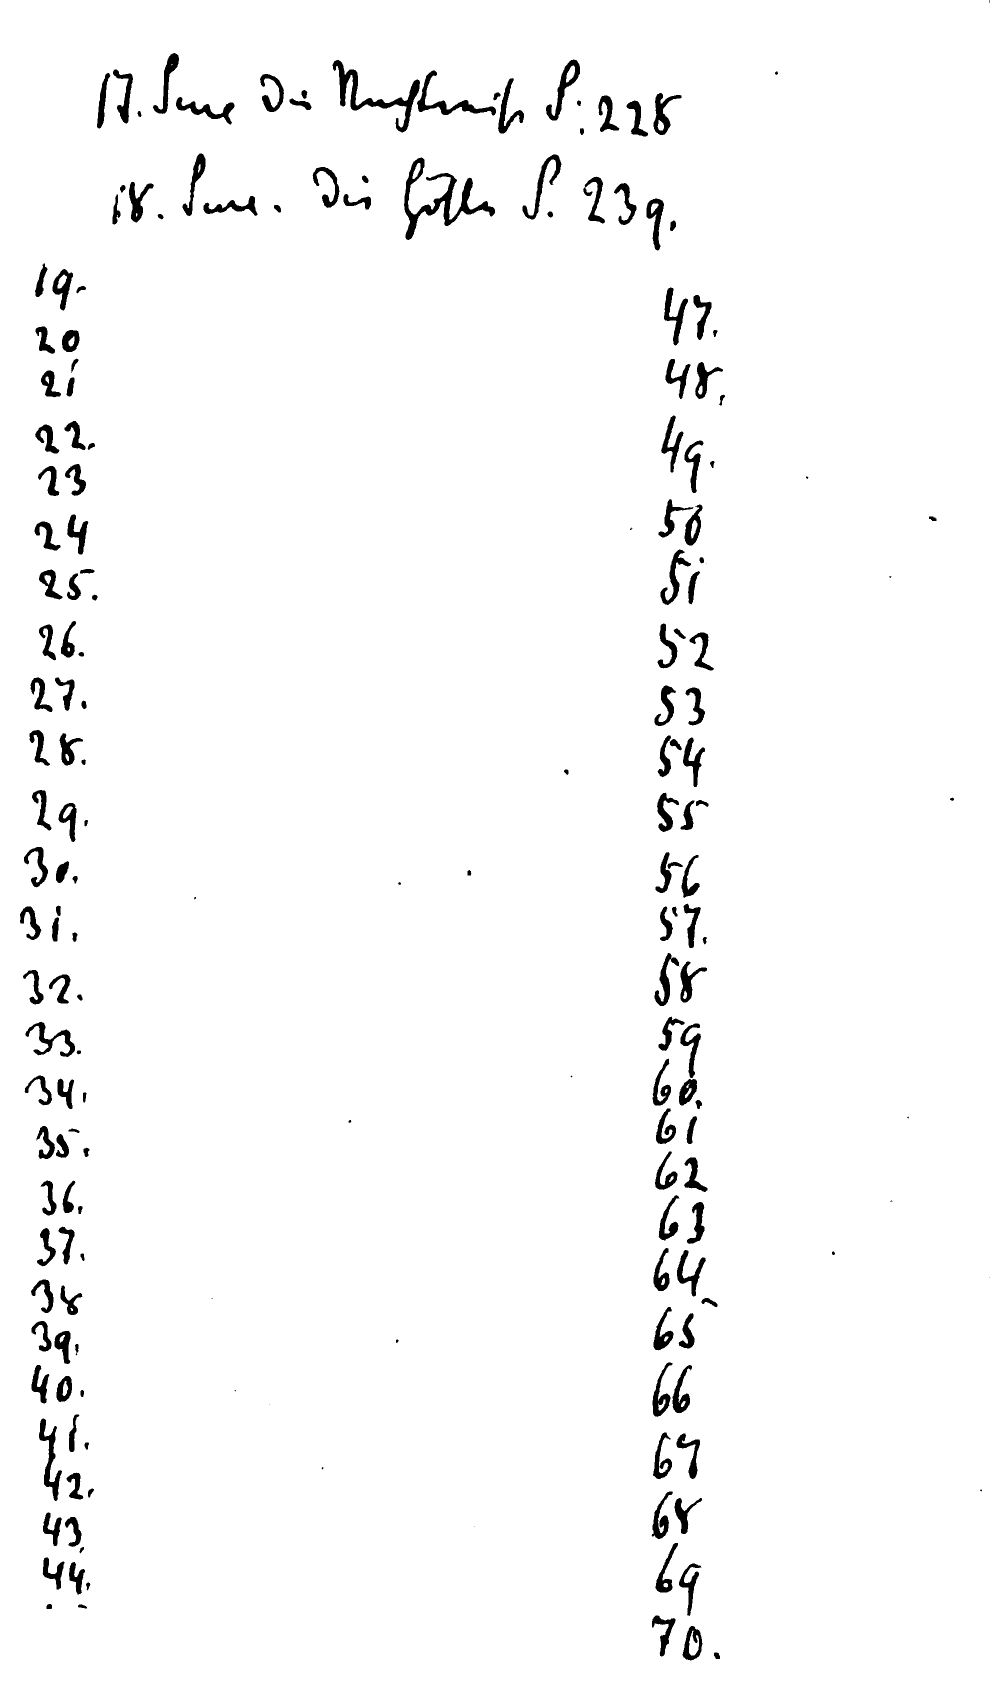 17. Sure Die Nachtreise S: 228
18. Sure. Die Höhle S. 239.
19.
20
21
22.
23
24
25.
26.
27.
28.
29.
30.
31.
32.
33.
34.
35.
36.
37.
38
39.
40.
41.
42.
43
44.
47.
48.
49.
50
51
52
53
54
55
56
57.
58
59
60.
61
62
63
64
65
66
67
68
69
70.